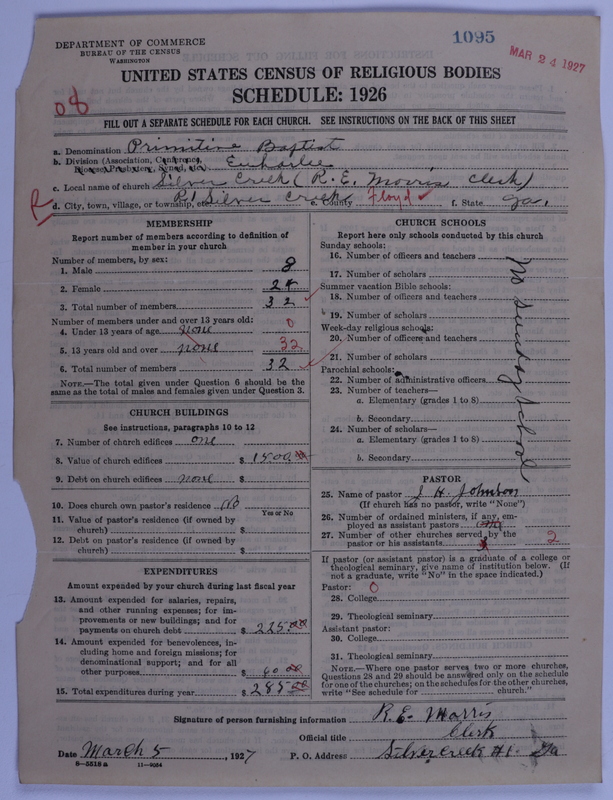 1095
MAR 24 1927
DEPARTMENT OF COMMERCE
BUREAU OF THE CENSUS
WASHINGTON
UNITED STATES CENSUS OF RELIGIOUS BODIES
SCHEDULE: 1926
08
FILL OUT A SEPARATE SCHEDULE FOR EACH CHURCH. SEE INSTRUCTIONS ON THE BACK OF THIS SHEET
a. Denomination Primitive Baptist
b. Division (Association, Conference, Diocese, Presbytery, Synod, etc.) Euharlee
c. Local name of church Silver Creek (R. E. Morris Clerk)
d. City, town, village, or township, etc. R1 Silver Creek e. County Floyd f. State Ga.
MEMBERSHIP
Report number of members according to definition of
member in your church
Number of members, by sex:
1. Male 8
2. Female 24
3. Total number of members 32
Number of members under and over 13 years old:
4. Under 13 years of age none 0
5. 13 years old and over none 32
6. Total number of members 32
NOTE.—The total given under Question 6 should be the
same as the total of males and females given under Question 3.
CHURCH BUILDINGS
See instructions, paragraphs 10 to 12
7. Number of church edifices one
8. Value of church edifices $ 1500.00
9. Debt on church edifices none $
10. Does church own pastor's residence no
Yes or No
11. Value of pastor's residence (if owned by
church) $
12. Debt on pastor's residence (if owned by
church) $
EXPENDITURES
Amount expended by your church during last fiscal year
13. Amount expended for salaries, repairs,
and other running expenses; for im-
provements or new buildings; and for
payments on church debt $ 225.00
14. Amount expended for benevolences, in-
cluding home and foreign missions; for
denominational support; and for all
other purposes $ 60.00
15. Total expenditures during year $ 285.00
CHURCH SCHOOLS
Report here only schools conducted by this church
Sunday schools:
16. Number of officers and teachers
17. Number of scholars
Summer vacation Bible schools:
18. Number of officers and teachers
19. Number of scholars
Week-day religious schools:
20. Number of officers and teachers
21. Number of scholars
Parochial schools:
22. Number of administrative officers
23. Number of teachers—
a. Elementary (grades 1 to 8)
b. Secondary
24. Number of scholars—
a. Elementary (grades 1 to 8)
b. Secondary
No Sunday School
PASTOR
25. Name of pastor J H Johnson
(If church has no pastor, write "None")
26. Number of ordained ministers, if any, em-
ployed as assistant pastors
27. Number of other churches served by the
pastor or his assistants 2
If pastor (or assistant pastor) is a graduate of a college or
theological seminary, give name of institution below. (If
not a graduate, write "No" in the space indicated.)
Pastor: 0
28. College
29. Theological seminary
Assistant pastor:
30. College
31. Theological seminary
NOTE.—Where one pastor serves two or more churches,
Questions 28 and 29 should be answered only on the schedule
for one of the churches; on the schedules for the other churches,
write "See schedule for church."
Signature of person furnishing information R. E. Morris
Official title Clerk
Date March 5, 1927 P. O. Address Silver Creek #1. Ga
8—5518 a 11—9054